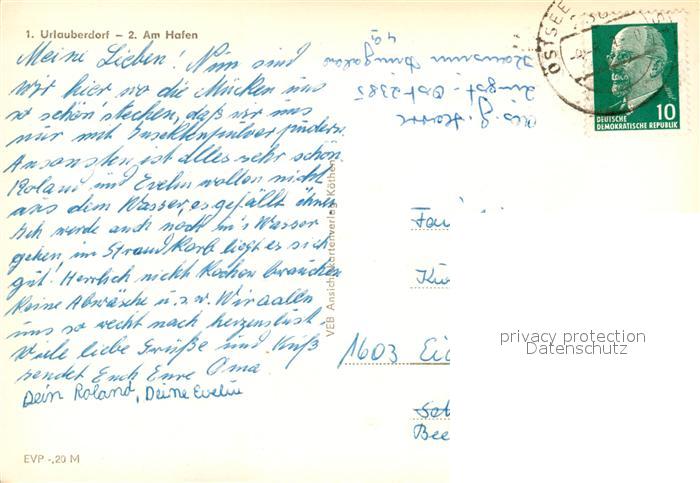 1. Urlauberdorf – 2. Am Hafen
Meine Lieben! Nun sind
wir hier wo die Mücken uns
so schön stechen, daß wir uns
nur mit Insektenpulver pudern.
Ansonsten ist alles sehr schön.
Roland und Evelin wollen nicht
aus dem Wasser, es gefällt ihnen
Ich werde auch noch in's Wasser
gehen, im Strand Korb liegt es sich
gut. Herrlich nicht Kochen brauchen
Keine Abwäsche u.s.w. Wir aalen
uns so recht nach herzenslust.
Viele liebe Grüße und Kuß
sendet Euch Eure Oma.
Dein Roland, Deine Evelin
EVP -,20 M
VEB Ansichtskartenverlag Köthen
49
Zingst - Ost 2385
OSTSEE
DEUTSCHE
DEMOKRATISCHE REPUBLIK
10
Fa
1603 Ei
Bee
privacy protection
Datenschutz